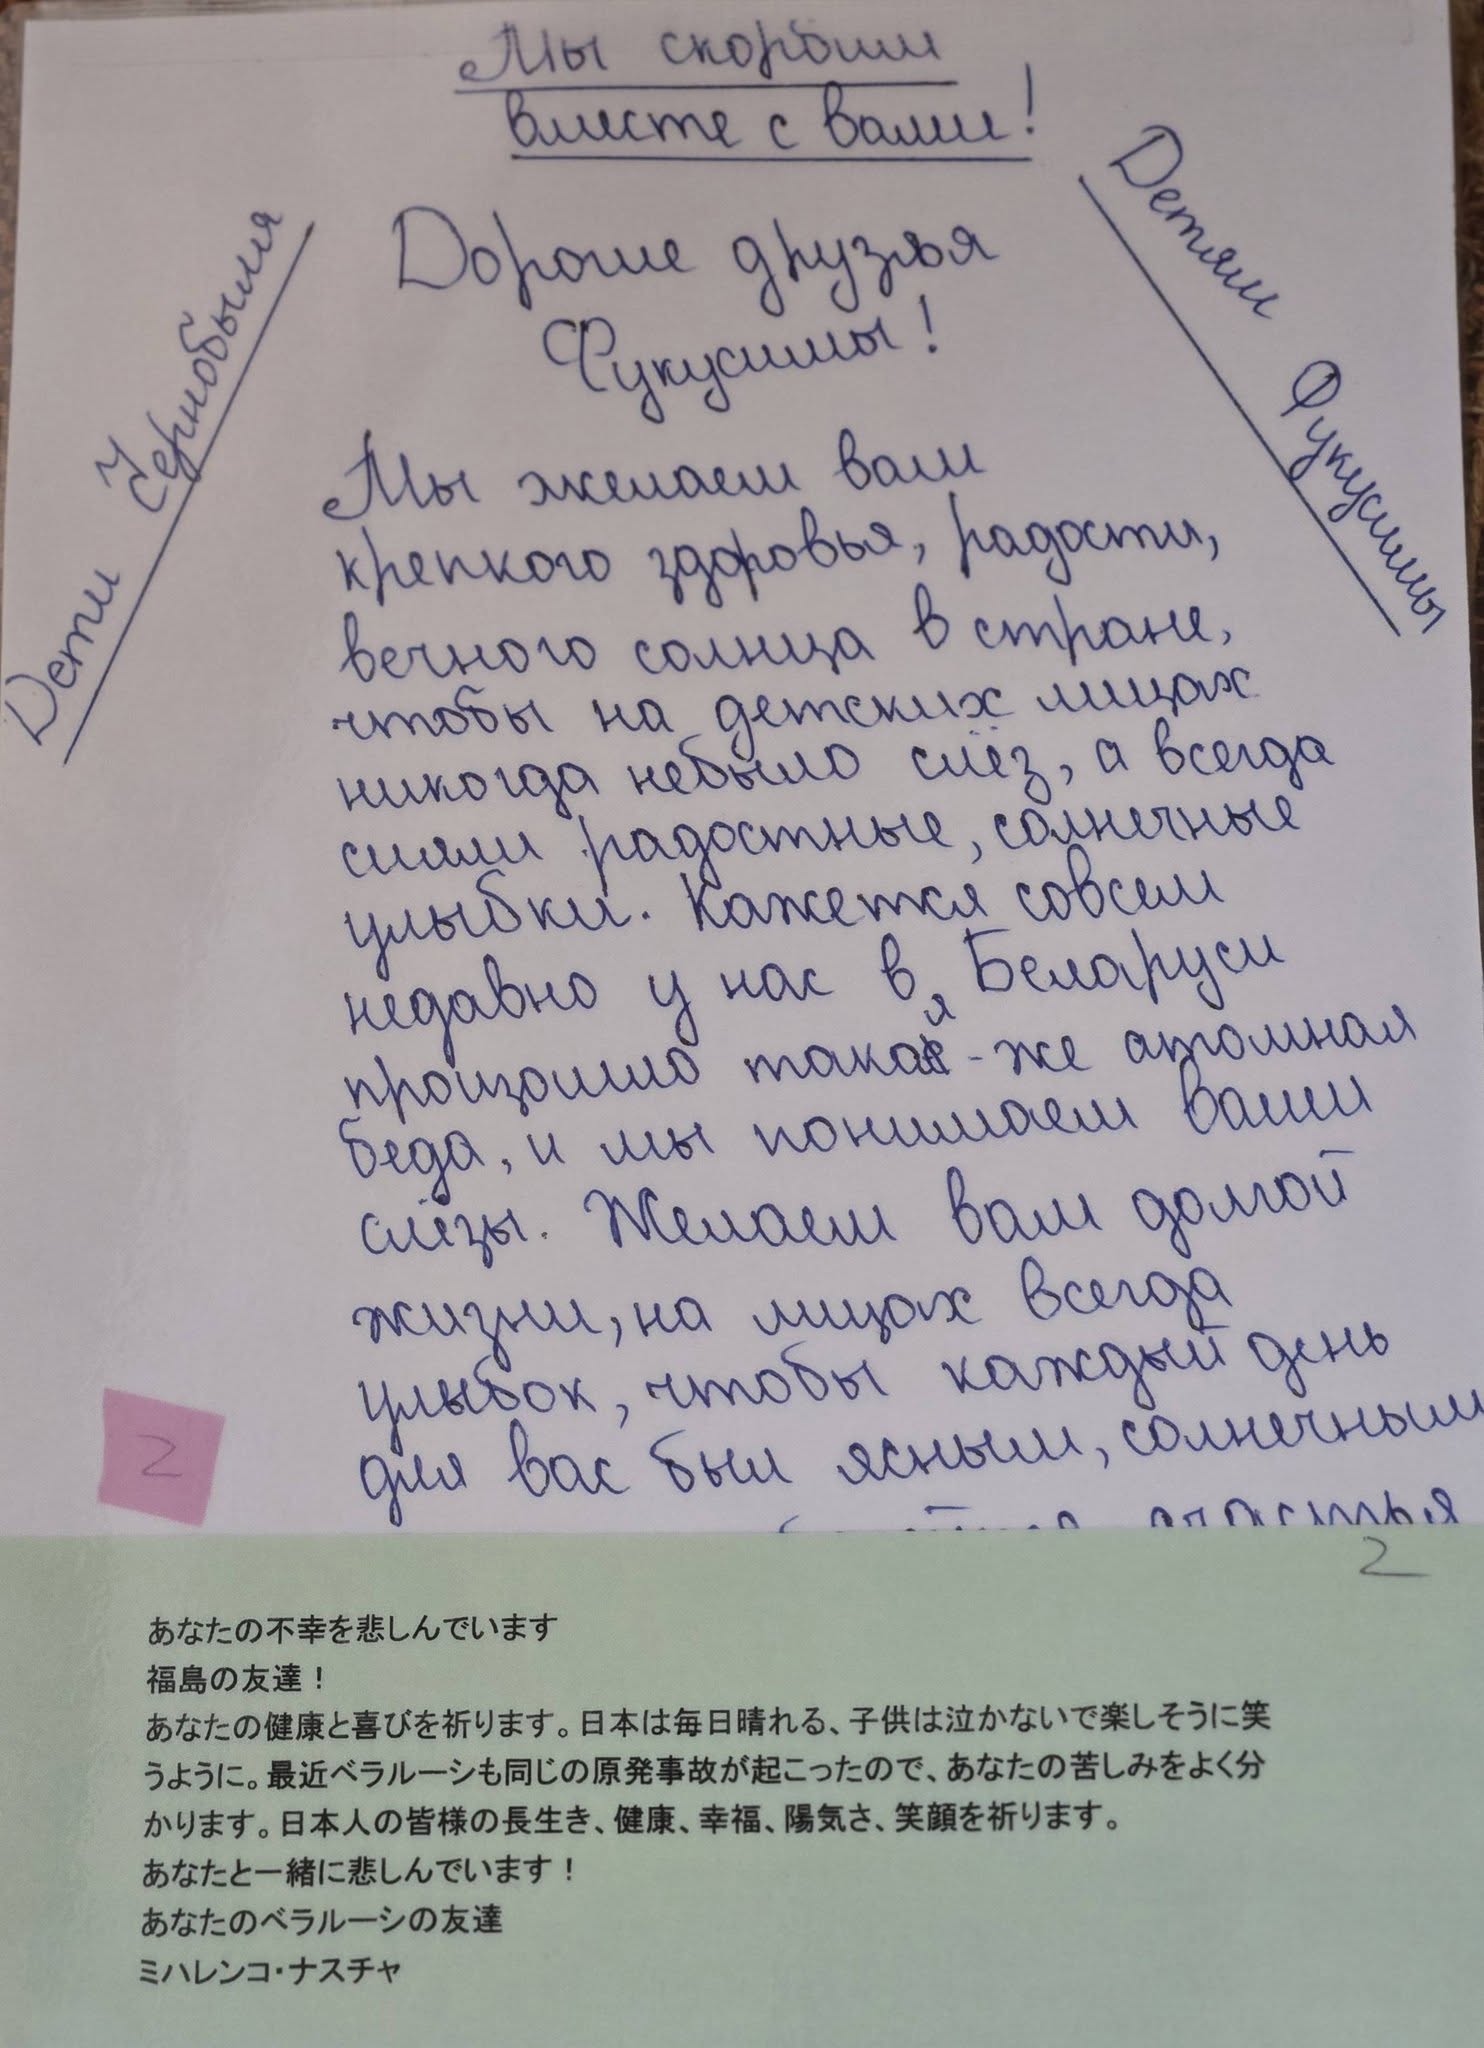 Мы скорбим
вместе с вами!
Дети Чернобыля
Детям Фукусимы
Дорогие друзья
Фукусимы!
Мы желаем вам
крепкого здоровья, радости,
вечного солнца в стране,
чтобы на детских лицах
никогда небыло слёз, а всегда
сияли радостные, солнечные
улыбки. Кажется совсем
недавно у нас в Беларуси
произошло такая-же атомная
беда, и мы понимаем ваши
слёзы. Желаем вам долгой
жизни, на лицах всегда
улыбок, чтобы каждый день
для вас был ясным, солнечным
счастья
2
2
あなたの不幸を悲しんでいます
福島の友達！
あなたの健康と喜びを祈ります。日本は毎日晴れる、子供は泣かないで楽しそうに笑
うように。最近ベラルーシも同じの原発事故が起こったので、あなたの苦しみをよく分
かります。日本人の皆様の長生き、健康、幸福、陽気さ、笑顔を祈ります。
あなたと一緒に悲しんでいます！
あなたのベラルーシの友達
ミハレンコ・ナスチャ